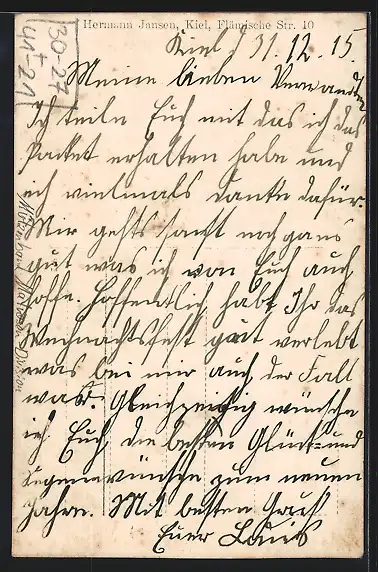 Hermann Jansen, Kiel, Flämische Str. 10
30-27
+
41-21
Kiel d 31.12.15.
Meine lieben Verwandten
Ich teile Euch mit das ich das
Packet erhalten habe und
ich vielmals danke dafür.
Mir gehts sonst noch ganz
gut was ich von Euch auch
hoffe. Hoffentlich habt Ihr das
Weihnachtsfest gut verlebt
was bei mir auch der Fall
war. Gleichzeitig wünsche
ich Euch, die besten Glück- und
Segenswünsche zum neuen
Jahre. Mit besten Gruß
Euer Louis
Mützenband Matrosen Division